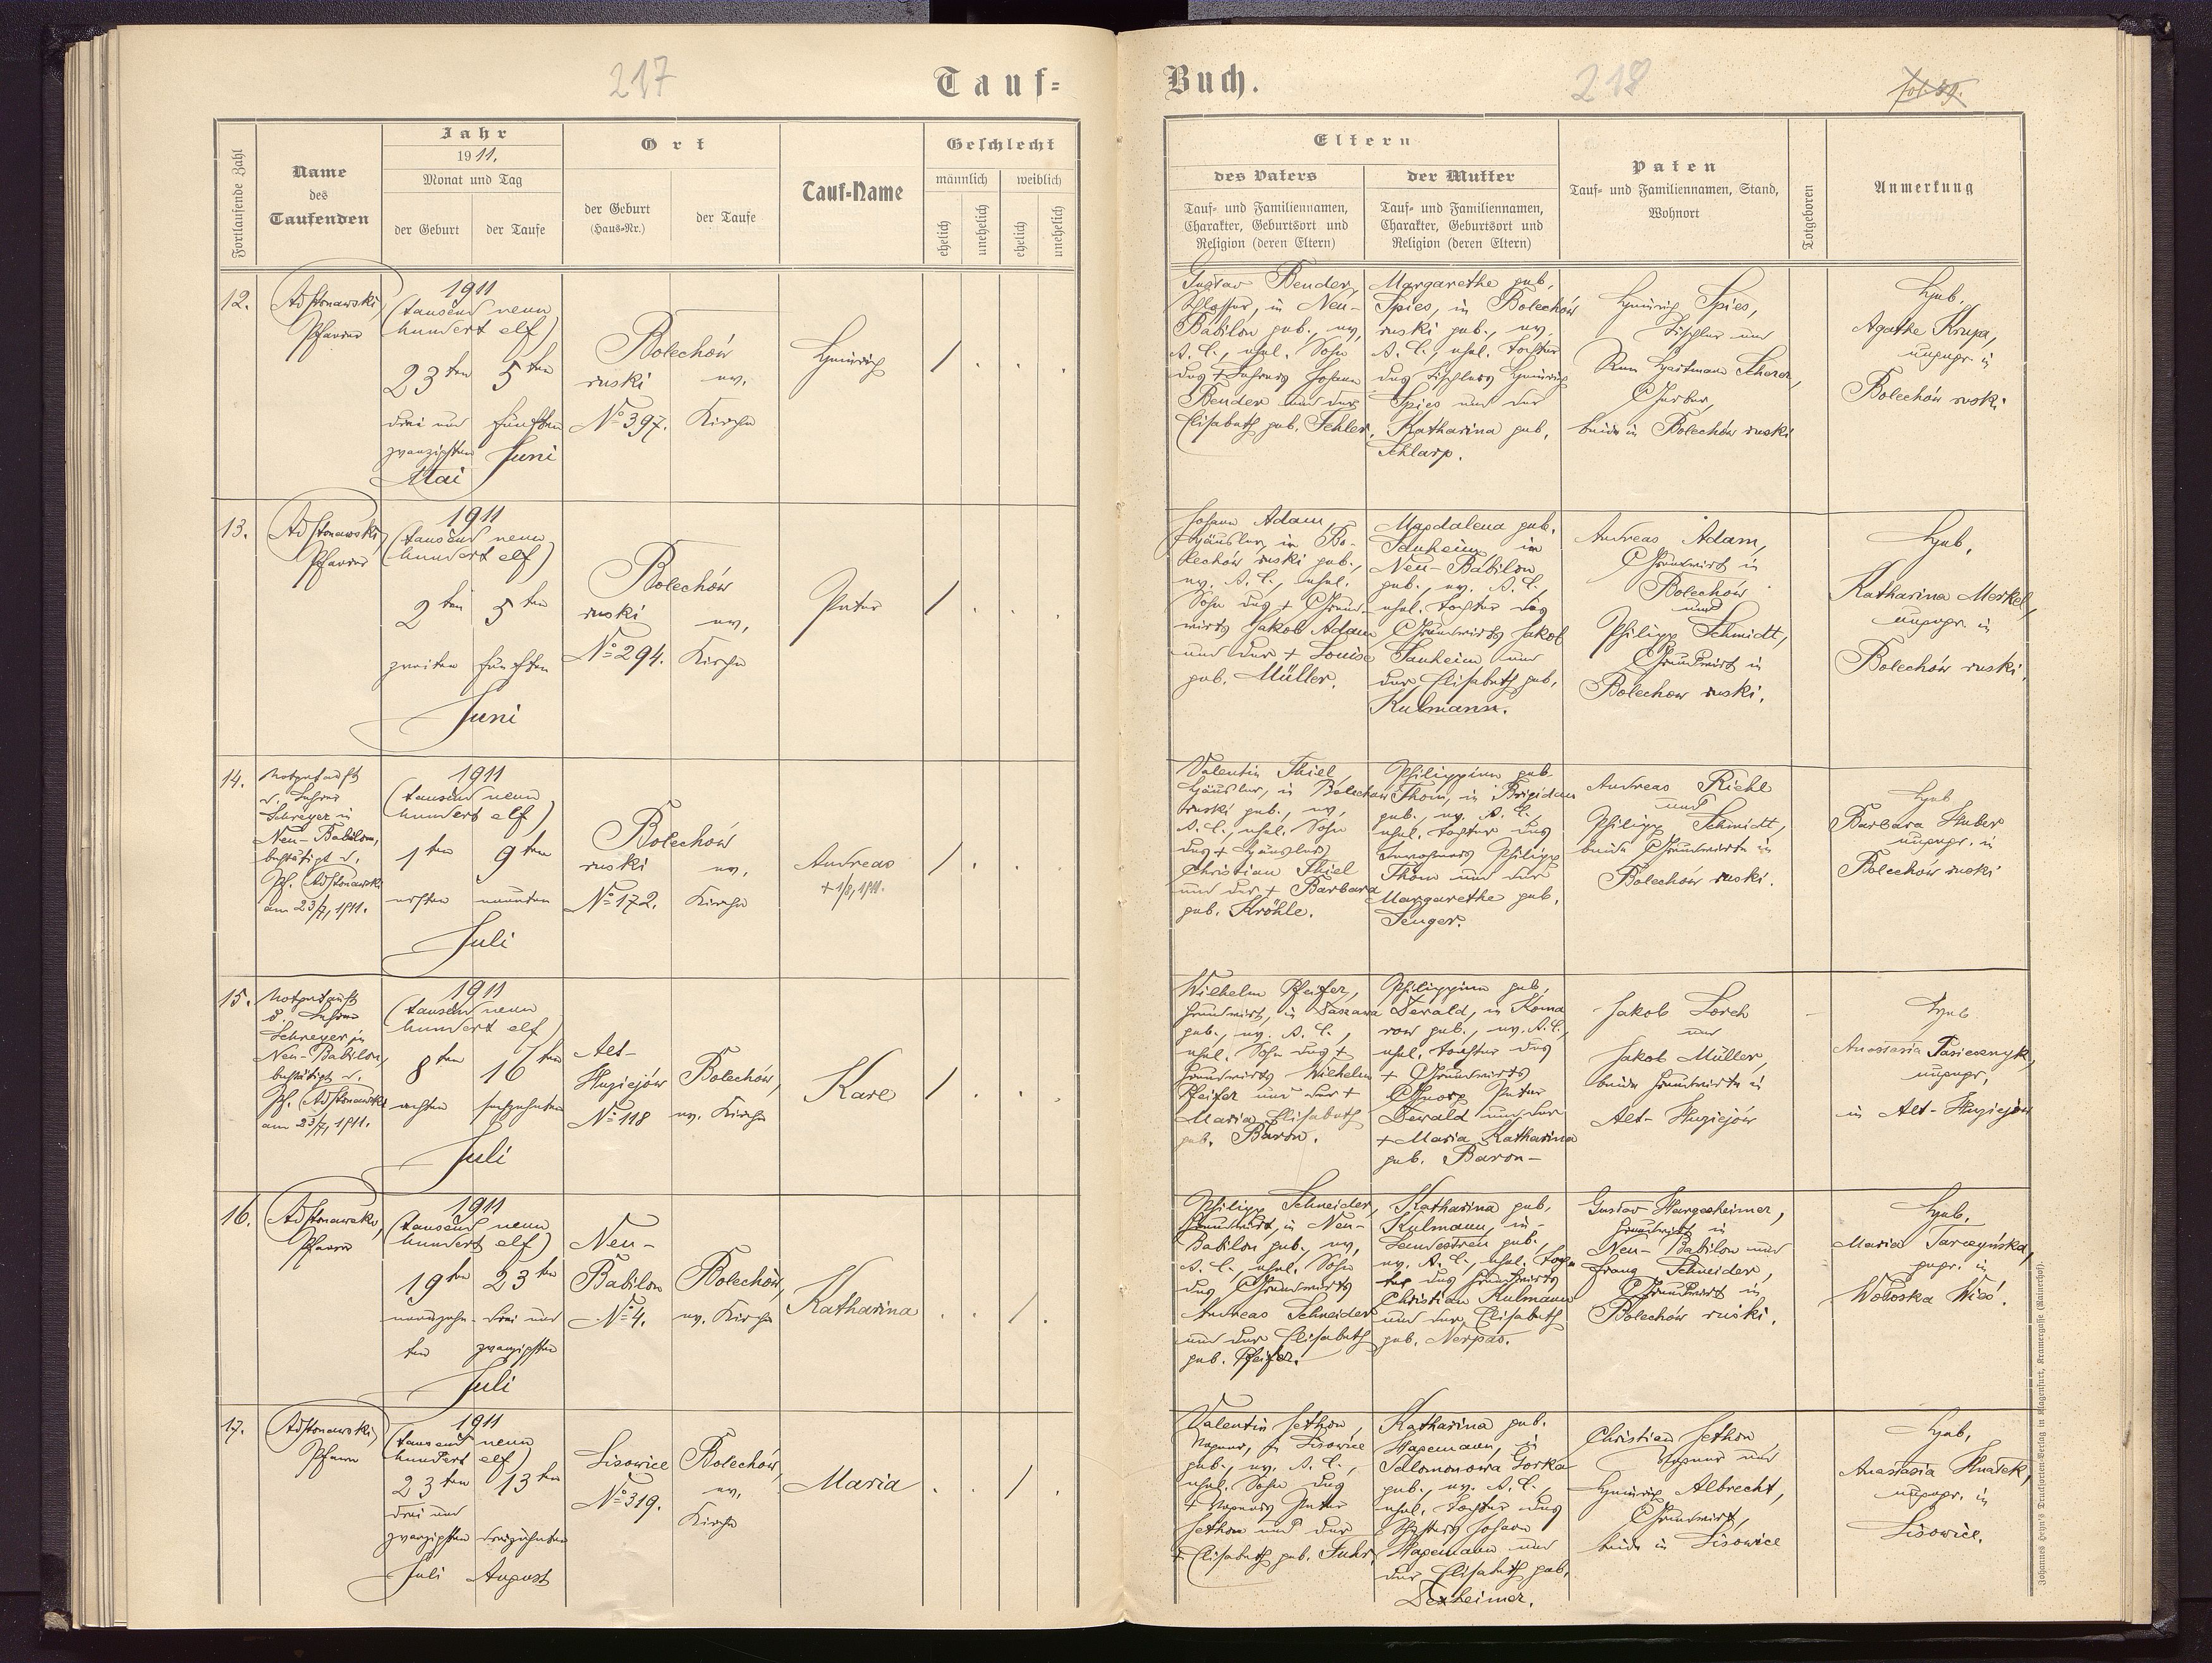 217
Tauf=
Fortlaufende Zahl
Name
des
Taufenden
Jahr
1911.
Monat und Tag
der Geburt
der Taufe
Ort
der Geburt
(Haus=Nr.)
der Taufe
Tauf=Name
Geschlecht
männlich
weiblich
ehelich
unehelich
ehelich
unehelich
12.
Adstonawski
Pfarrer
1911
(tausend neun
hundert elf)
23ten 5ten
drei und fünften
zwanzigsten Juni
Mai
Bolechów
ruski ev.
No 397. Kirche
Heinrich
/ . . .
13.
Adstonawski
Pfarrer
1911
(tausend neun
hundert elf)
2ten 5ten
zweiten fünften
Juni
Bolechów
ruski ev.
No 294. Kirche
Peter
/ . . .
14.
Notgetauft
v. Lehrer
Schreyer in
Neu-Babilon,
bestätigt v.
Pf. Adstonawski
am 23/7, 1911.
1911
(tausend neun
hundert elf)
1ten 9ten
ersten neunten
Juli
Bolechów
ruski ev.
No 172. Kirche
Andreas
+ 1/8, 1911.
/ . . .
15.
Notgetauft
v. Lehrer
Schreyer in
Neu-Babilon,
bestätigt v.
Pf. Adstonawski
am 23/7, 1911.
1911
(tausend neun
hundert elf)
8ten 16ten
achten sechzehnten
Juli
Alt-
Huziejów
No 118
Bolechów,
ev. Kirche
Karl
/ . . .
16.
Adstonawski,
Pfarrer
1911
(tausend neun
hundert elf)
19ten 23ten
neunzehn- drei und
ten zwanzigsten
Juli
Neu-
Babilon
No 4.
Bolechów,
ev. Kirche
Katharina
. . / .
17.
Adstonawski,
Pfarrer
1911
(tausend neun
hundert elf)
23ten 13ten
drei und
zwanzigsten dreizehnten
Juli August
Lisowice
No 319.
Bolechów,
ev.
Kirche
Maria
. . / .
Buch.
218
fol. 89.
Eltern
des Vaters
Tauf= und Familiennamen,
Charakter, Geburtsort und
Religion (deren Eltern)
der Mutter
Tauf= und Familiennamen,
Charakter, Geburtsort und
Religion (deren Eltern)
Paten
Tauf= und Familiennamen, Stand,
Wohnort
Totgeboren
Anmerkung
Gustav Bender,
Schlosser, in Neu-
Babilon geb., ev.
A. C., ehel. Sohn
des + Lehrers Johann
Bender und der
Elisabeth geb. Fehler.
Margarethe geb.
Spies, in Bolechów
ruski geb., ev.
A. C., ehel. Tochter
des Tischlers Heinrich
Spies und der
Katharina geb.
Schlarp.
Heinrich Spies,
Tischler und
Hartmann Scherer,
Gerber,
beide in Bolechów ruski
Heb.
Agathe Krupa,
ungepr. in
Bolechów ruski
Johann Adam,
Häusler, in Bo-
lechów ruski geb.,
ev. A. C., ehel.
Sohn des + Grund-
wirts Jakob Adam
und der + Louise
geb. Müller.
Magdalena geb.
Sauheim, in
Neu-Babilon
geb., ev. A. C.,
ehel. Tochter des
Grundwirts Jakob
Sauheim und
der Elisabeth geb.
Kulmann.
Andreas Adam,
Grundwirt in
Bolechów
und
Philipp Schmidt,
Grundwirt in
Bolechow ruski.
Heb.
Katharina Merkel,
ungepr. in
Bolechów ruski.
Valentin Thiel,
Häusler, in Bolechow
ruski geb., ev.
A. C., ehel. Sohn
des + Häuslers
Christian Thiel
und der + Barbara
geb. Kröhle.
Philippine geb.
Thom, in Brigidau
geb., ev. A. C.,
ehel. Tochter des
Inwohners Philipp
Thom und der
Margarethe geb.
Senger.
Andreas Riehl
und
Philipp Schmidt,
beide Grundwirte in
Bolechów ruski.
Heb.
Barbara Huber
ungepr. in
Bolechów ruski
Wilhelm Pfeifer,
Grundwirt, in
geb., ev. A. C.,
ehel. Sohn des +
Grundwirts Wilhelm
Pfeifer und der +
Maria Elisabeth
geb. Baron.
Philippine geb.
Dewald, in Koma
row geb., ev. A. C.,
ehel. Tochter des
+ Grundwirts
Georg Peter
Dewald und der
+ Maria Katharina
geb. Baron-
Jakob Lorch
und
Jakob Müller,
beide Grundwirte in
Alt-Huziejów
Heb.
Anastasia Pasiecznyk,
ungepr.
in Alt-Huziejów
Philipp Schneider,
Grundwirt, in Neu-
Babilon geb., ev.
A. C., ehel. Sohn
des Grundwirts
Andreas Schneider
und der Elisabeth
geb. Pfeifer.
Katharina geb.
Kulmann, in
Landestreu geb.,
ev. A. C., ehel. Toch-
ter des Grundwirts
Christian Kulmann
und der Elisabeth
geb. Nerpas.
Gustav Hargesheimer,
Grundwirt in
Neu-Babilon und
Franz Schneider,
Grundwirt in
Bolechów ruski.
Heb.
Maria Tarczyńska,
gepr. in
Wołoska Wieś.
Valentin Jethon,
Wagner, in Lisowice
geb., ev. A. C.,
ehel. Sohn des
+ Wagners Peter
Jethon und der
+ Elisabeth geb. Fuhr.
Katharina geb.
Hagemann, in
Salomonowa Gorka
geb., ev. A. C.,
ehel. Tochter des
Johann
Hagemann und
der Elisabeth geb.
Dexheimer.
Christian Jethon
Wagner und
Heinrich Albrecht,
Grundwirt,
beide in Lisowice
Heb.
Anastasia Hnatek,
ungepr. in
Lisowice.
Johannes Heyn's Drucksorten=Verlag in Klagenfurt, Kramergasse (Mainerhof).